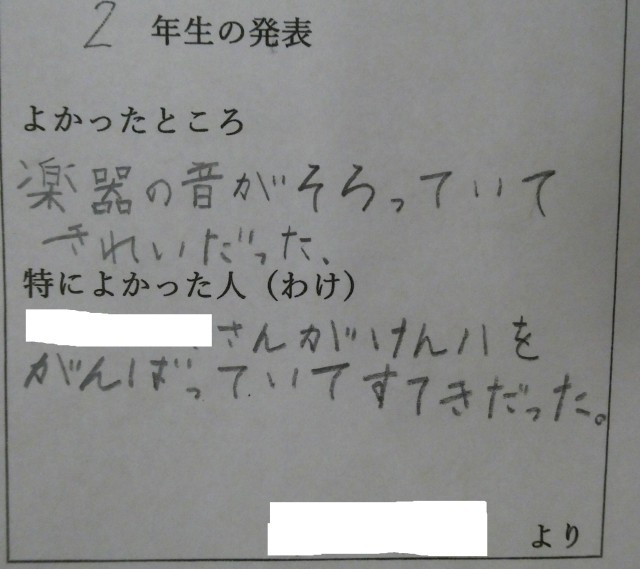 2 年生の発表
よかったところ
楽器の音がそろっていて
きれいだった、
特によかった人（わけ）
さんがけんハを
がんばっていてすてきだった。
より